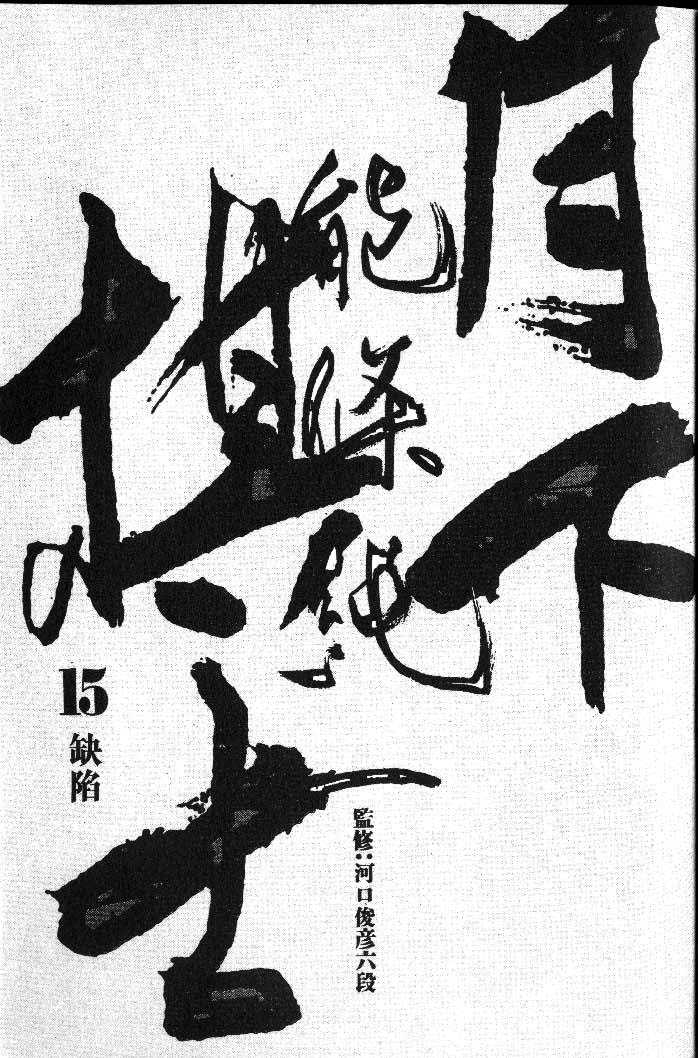 月下の棋士
能條純一
監修：河口俊彦六段
15
缺陷